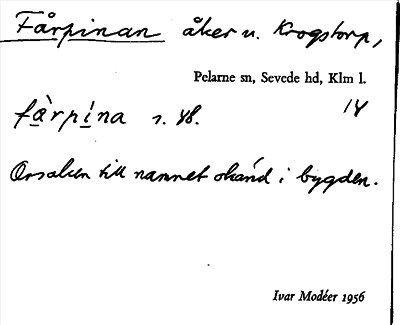 Fårpinan åker u. Krogstorp,
Pelarne sn, Sevede hd, Klm l.
få̀rpína s. 48. 14
Orsaken till namnet okänd i bygden.
Ivar Modéer 1956